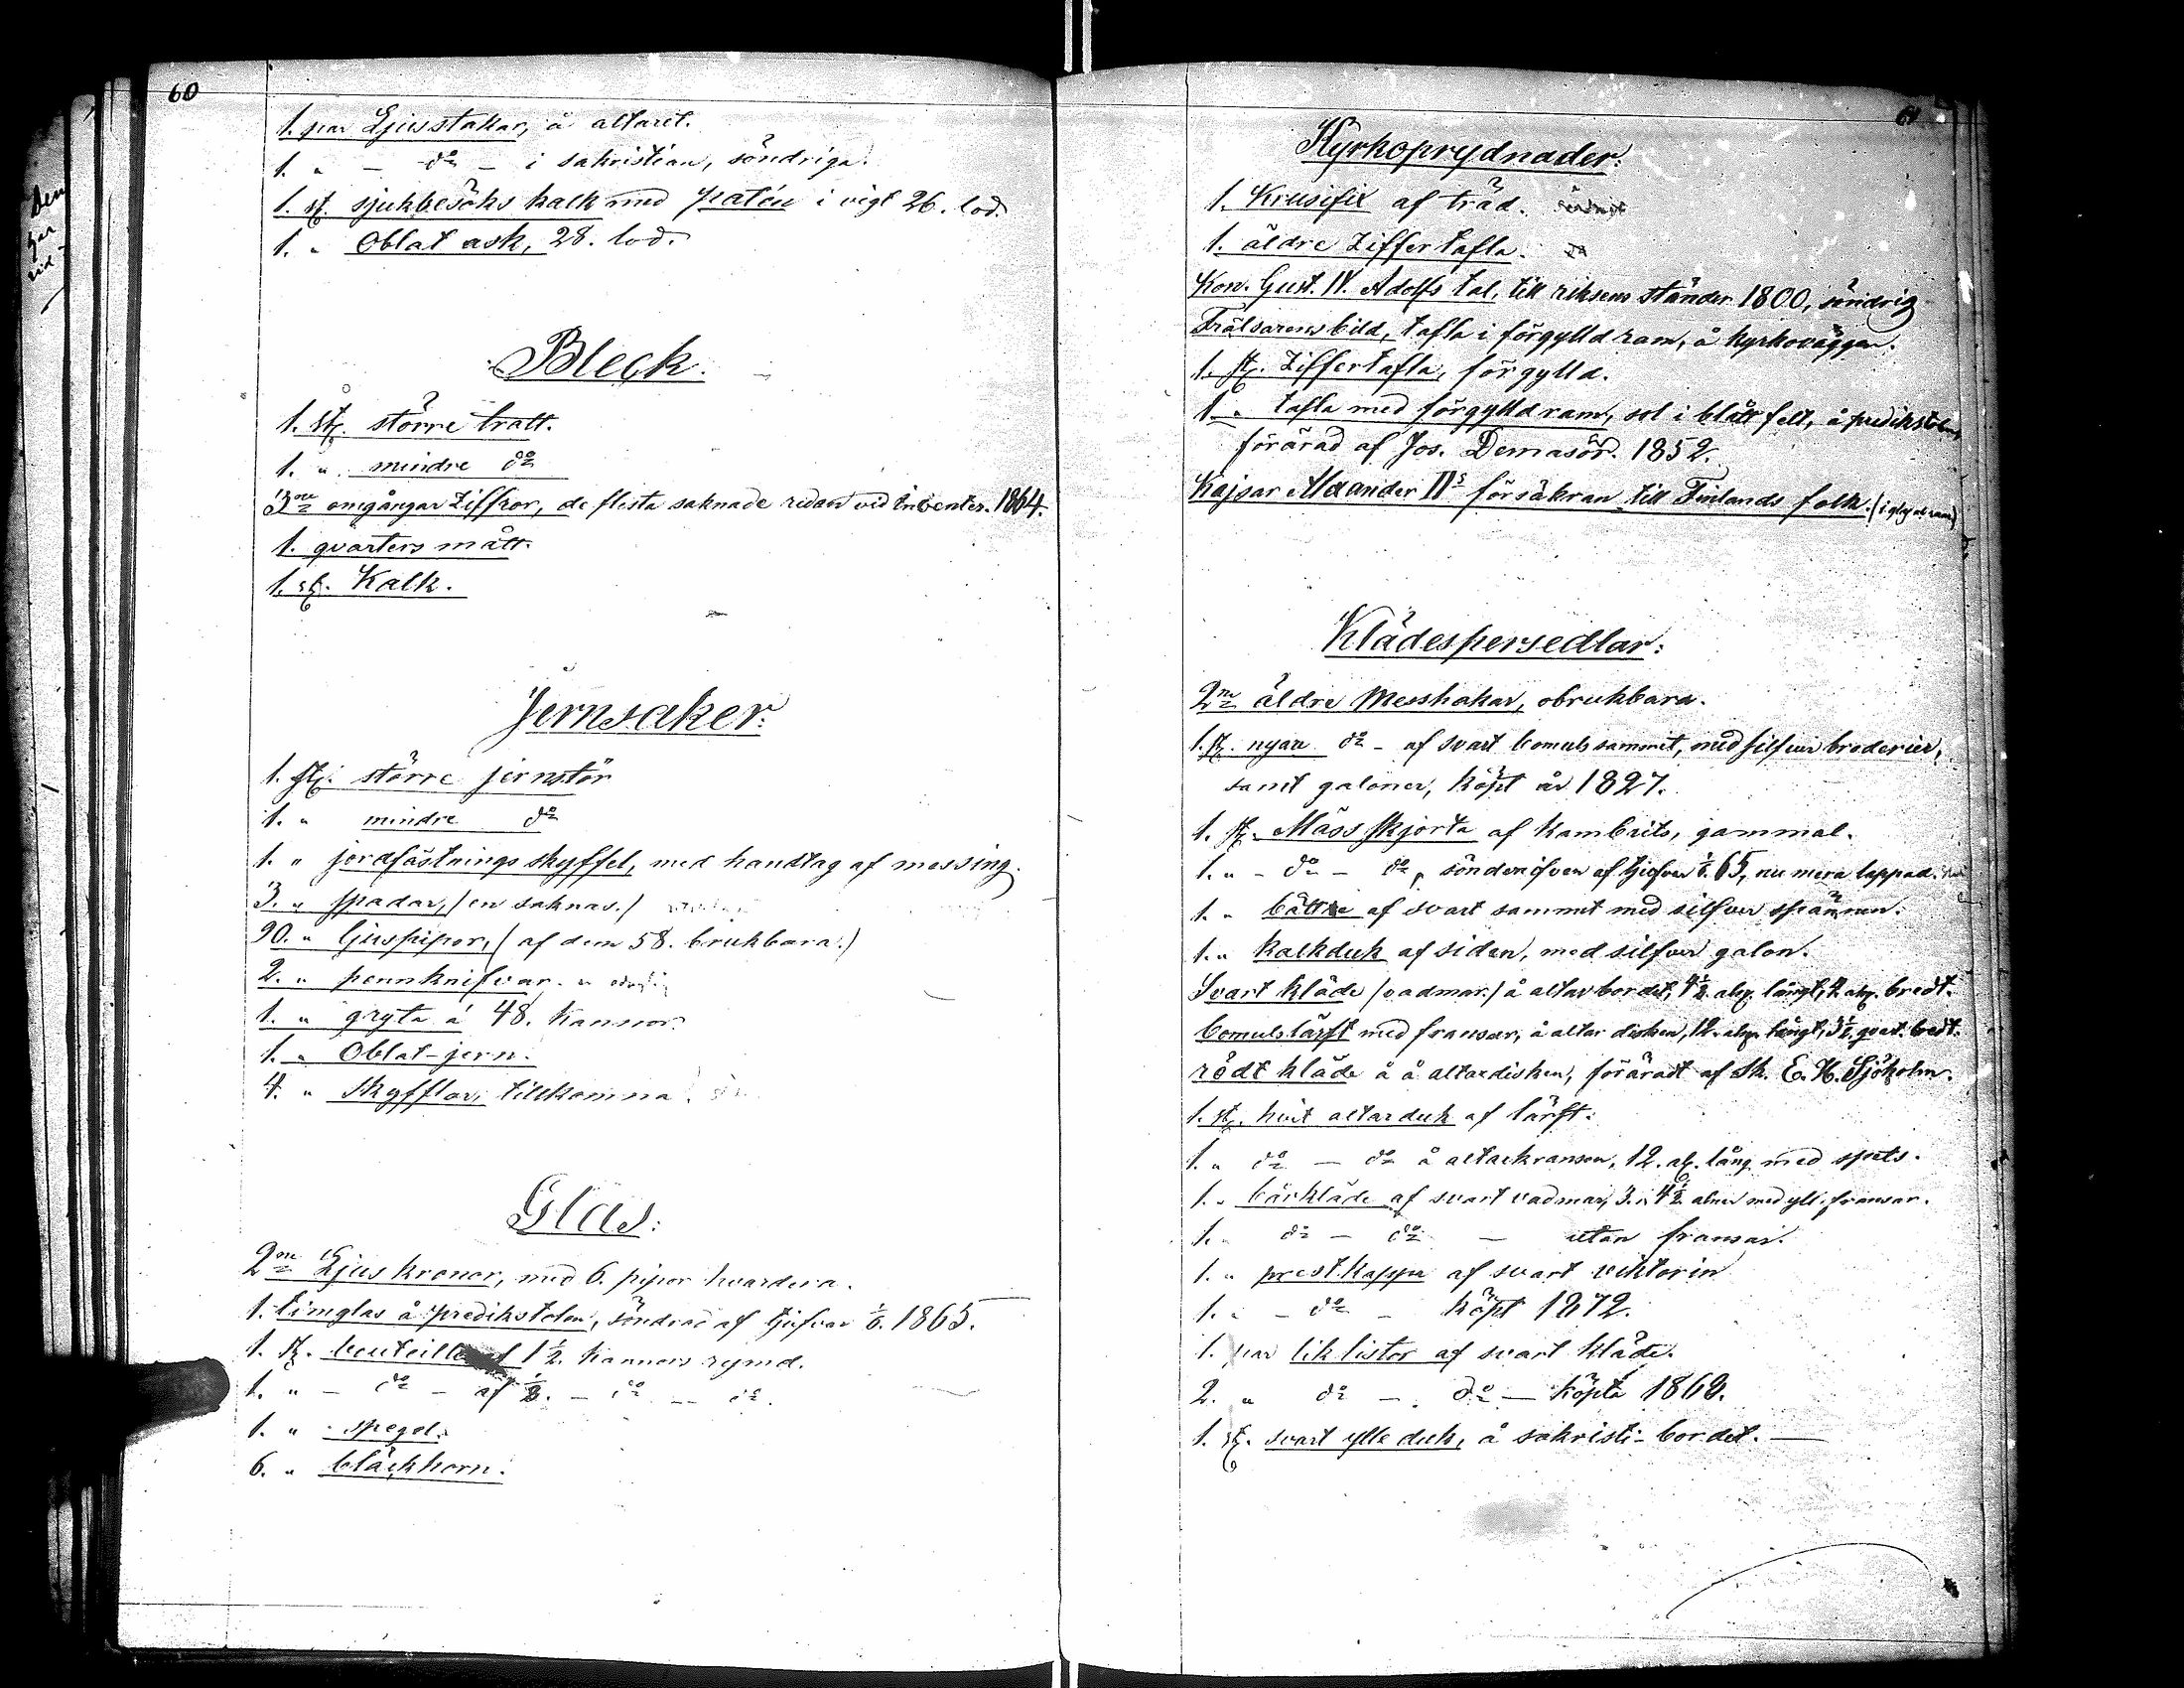 60
1. par Ljusstakar, å altaret.
1. " — do — i sakristian, söndriga.
1. st. sjukbesöks kalk med patén i vigt 26. lod.
1. " Oblat ask, 28. lod.
Bleck.
1. st. större tratt.
1. " mindre do
3ne omgångar ziffror, de flesta saknade redan vid inventer. 1864.
1. qvarters mått.
1. st. Kalk.
Jernsaker:
1. st. större jernstör
1. " mindre do
1. " jordfästnings skyffel, med handtag af messing.
3. " spadar, (en saknas.)
90. " ljuspipor, (af dem 58. brukbara.)
2. " pennknifvar.
1. " gryta á 48. kannor.
1. " Oblat-jern.
4. " skyfflar, tillkomna.
Glas:
2ne Ljuskronor, med 6. pipor hvardera.
1. timglas å predikstolen, söndrad af tjufvar 1/6. 1865.
1. st. bouteille af 1 1/2. kannors rymd.
1. " — do — af 1/2. — do — do.
1. " spegel.
6. " bläckhorn.
61
Kyrkoprydnader:
1. Krusifix af träd.
1. äldre Ziffertafla.
Kon. Gust. IV. Adolfs tal, till riksens ständer 1800, söndrig
Frälsarens bild, tafla i förgylld ram, å kyrkoväggen.
1. st. Ziffertafla, förgylld.
1. " tafla med förgylld ram, sol i blått felt, å predikstolen,
förärad af Jos. Demasör. 1852.
Kajsar Alexander IIs försäkran till Finlands folk.
Klädespersedlar:
2ne äldre Messhakar, obrukbara.
1. st. nyare do - af svart bomulssammet, med silfver broderier,
samt galoner, köpt år 1827.
1. st. Mässskjorta af Kambrits, gammal.
1. " - do - do, sönderrifven af tjufvar 1/6. 65, nu mera lappad.
1. " bälte af svart sammet med silfver spännen.
1. " kalkduk af siden, med silfver galon.
Svart kläde (vadmar.) å altarbordet, 4 1/2. aln. långt, 4. aln. bredt.
bomulslärft med fransar, å altar disken, 12. aln. långt, 3 1/2. qvart. bredt.
rödt kläde å å altardisken, föräradt af Sk. E. H. Sjöholm.
1. st. hvit altarduk af lärft.
1. " do — do å altarkransen, 12. aln. lång med spets.
1. " bårkläde af svart vadmar, 3. á 4 1/2 alnar med yll. fransar.
1. " do — do — utan fransar.
1. " prestkappa af svart viktorin
1. " — do — köpt 1872.
1. par liklistor af svart kläde.
2. " do — do — köpta 1862.
1. st. svart ylle duk, å sakristi-bordet. —